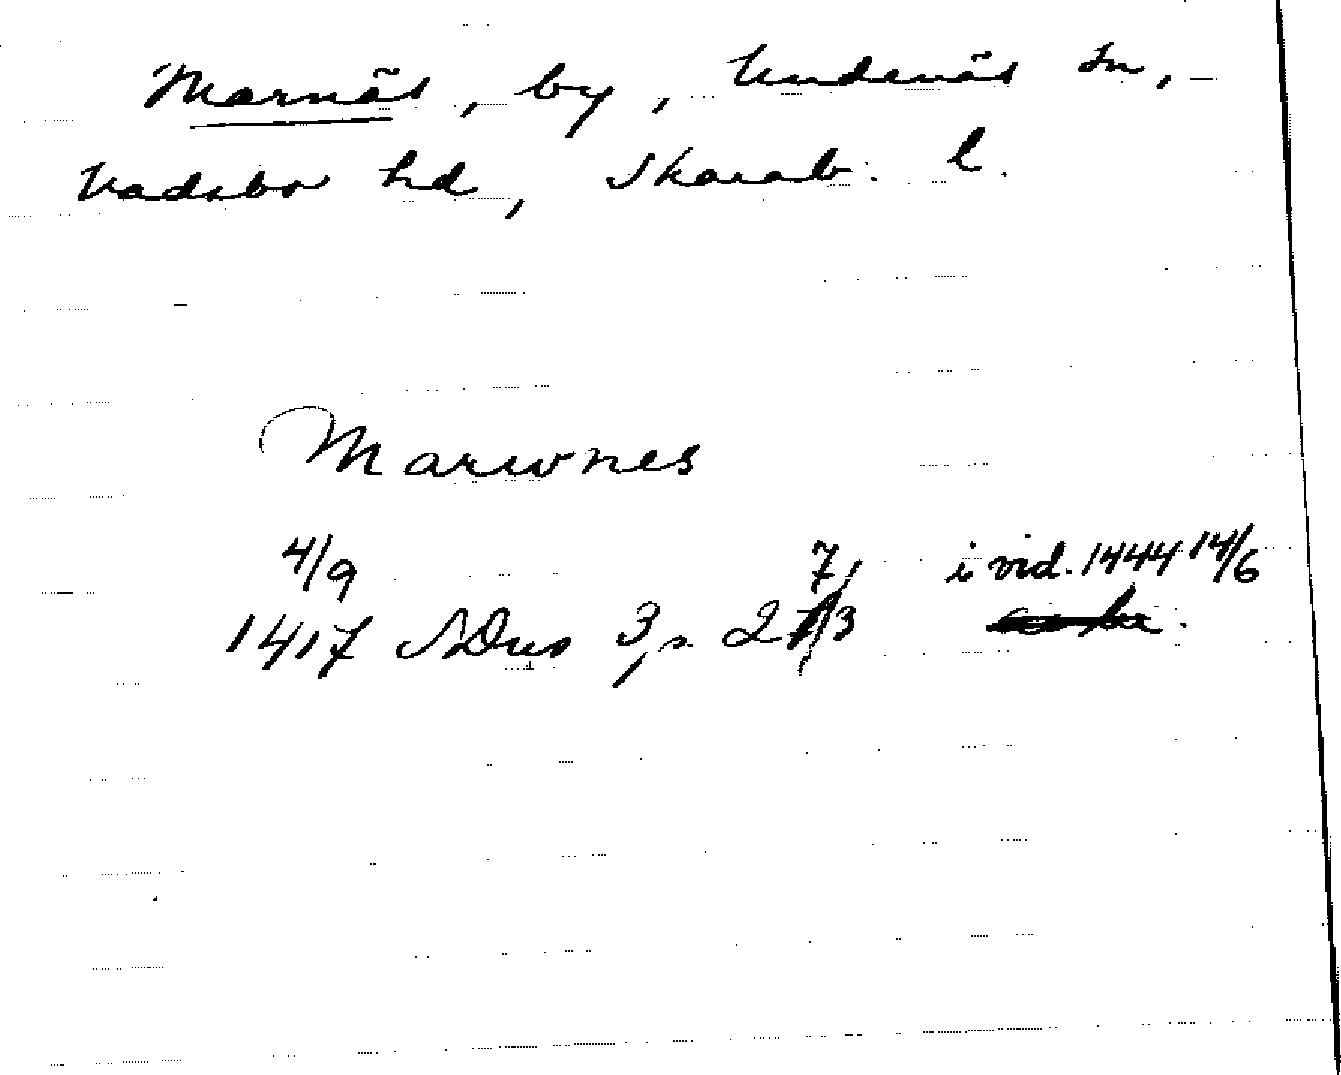 Marnäs, by, Undenäs sn,
Vadsbo hd, Skarab. l.
Marwnes
4/9 7/ i vid. 1444 14/6
1417 SDns 3, s. 2 /3